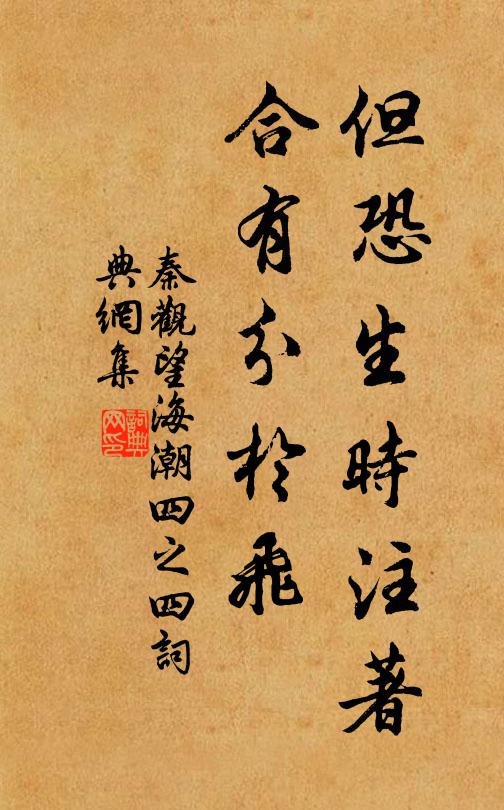 但恐生時注著
合有分於飛
秦觀望海潮四之四詞
典網集
詞典
网印